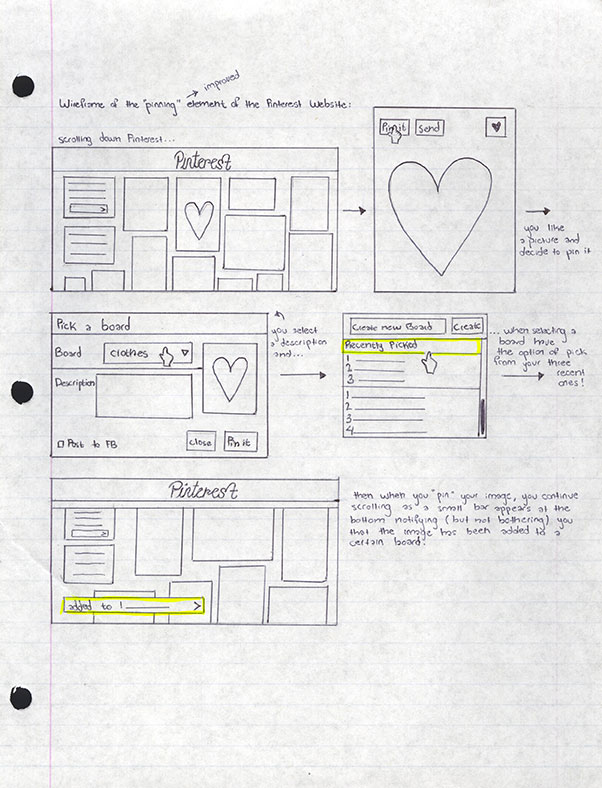 improved
Wireframe of the "pinning" element of the Pinterest Website:
scrolling down Pinterest...
Pinterest
Pin it
Send
you like
a picture and
decide to pin it
Pick a board
Board
clothes
Description
Post to FB
close
Pin it
you select
a description
and...
Create new Board
Create
Recently Picked
1
2
3
1
2
3
4
... when selecting a
board have
the option of pick
from your three
recent
ones!
Pinterest
added to !
>
then when you "pin" your image, you continue
scrolling as a small bar appears at the
bottom notifying (but not bothering) you
that the image has been added to a
certain board!